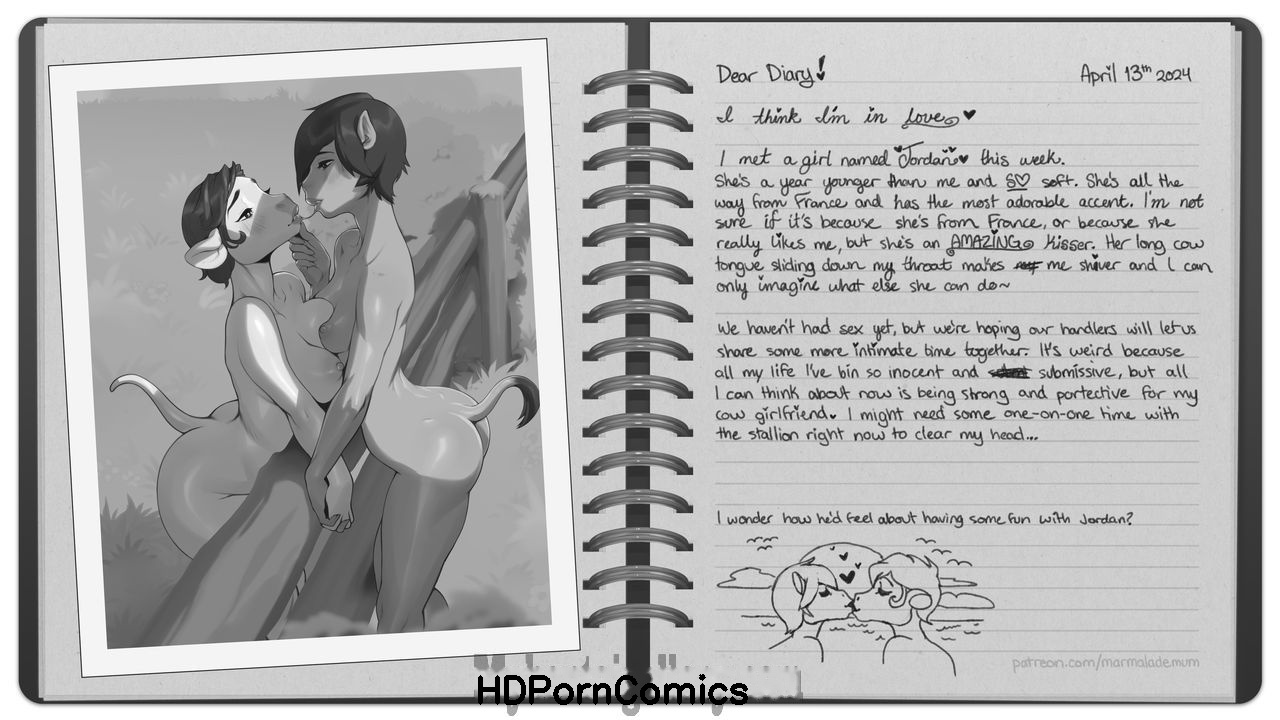 Dear Diary!
April 13th 2024
I think I'm in love
I met a girl named Jordan this week.
She's a year younger than me and SO soft. She's all the
way from France and has the most adorable accent. I'm not
sure if it's because she's from France, or because she
really likes me, but she's an AMAZING kisser. Her long cow
tongue sliding down my throat makes me shiver and I can
only imagine what else she can do~
We haven't had sex yet, but we're hoping our handlers will let us
share some more intimate time together. It's weird because
all my life I've bin so inocent and submissive, but all
I can think about now is being strong and portective for my
cow girlfriend. I might need some one-on-one time with
the stallion right now to clear my head...
I wonder how he'd feel about having some fun with Jordan?
patreon.com/marmalademum
HDPornComics